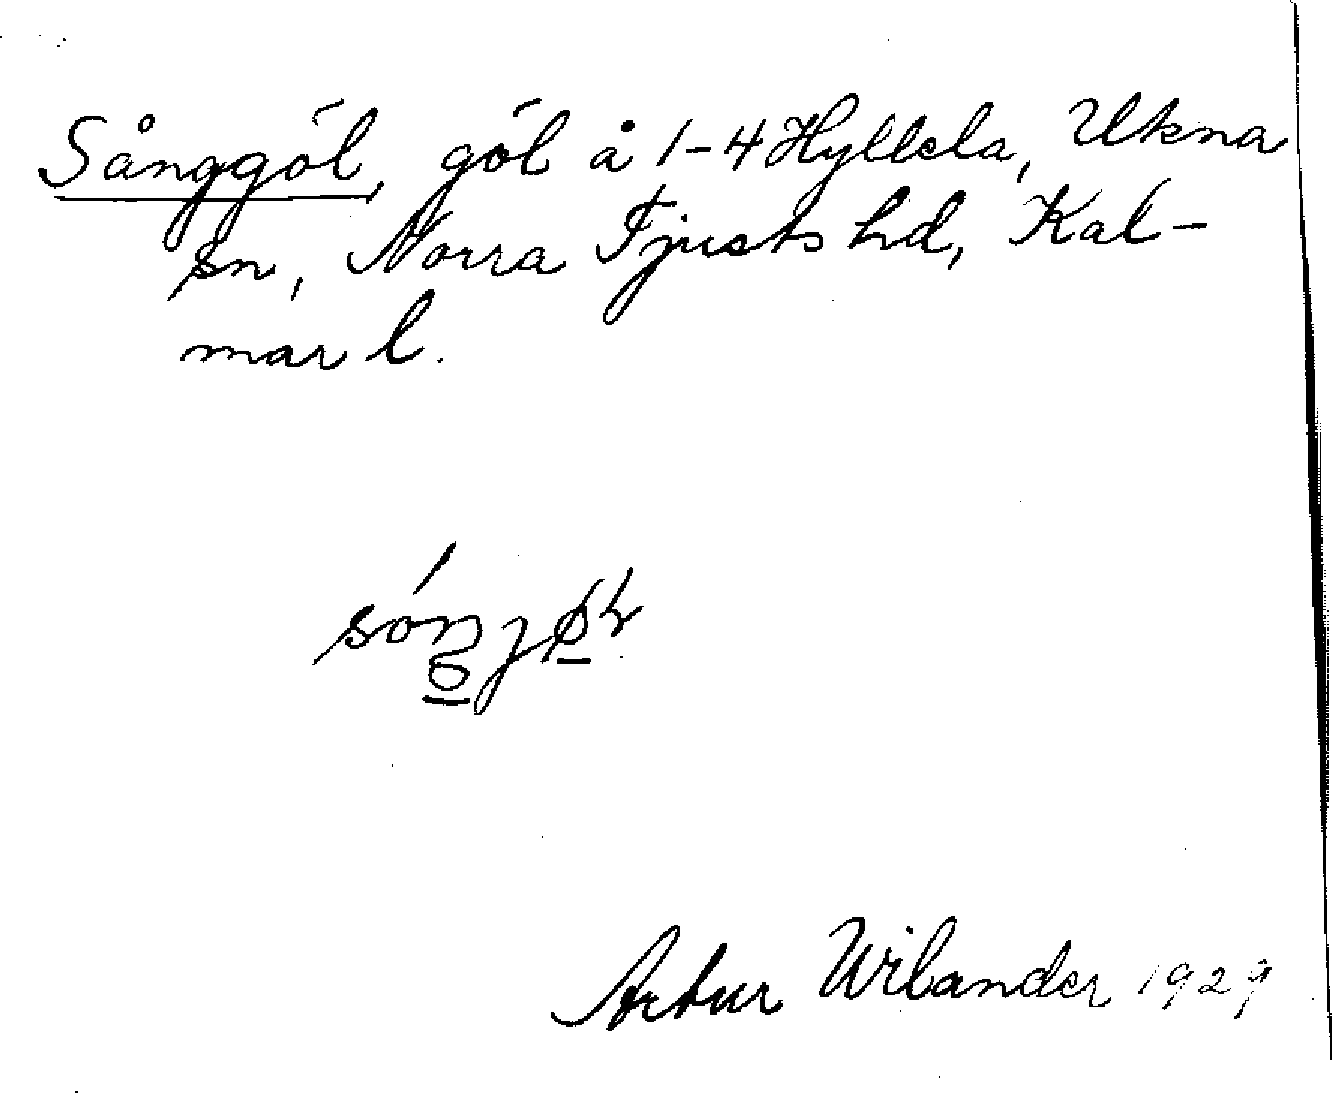 Sånggöl, göl å 1-4 Hyllela, Ukna
sn, Norra Tjusts hd, Kal-
mar l.
Artur Wilander 1929